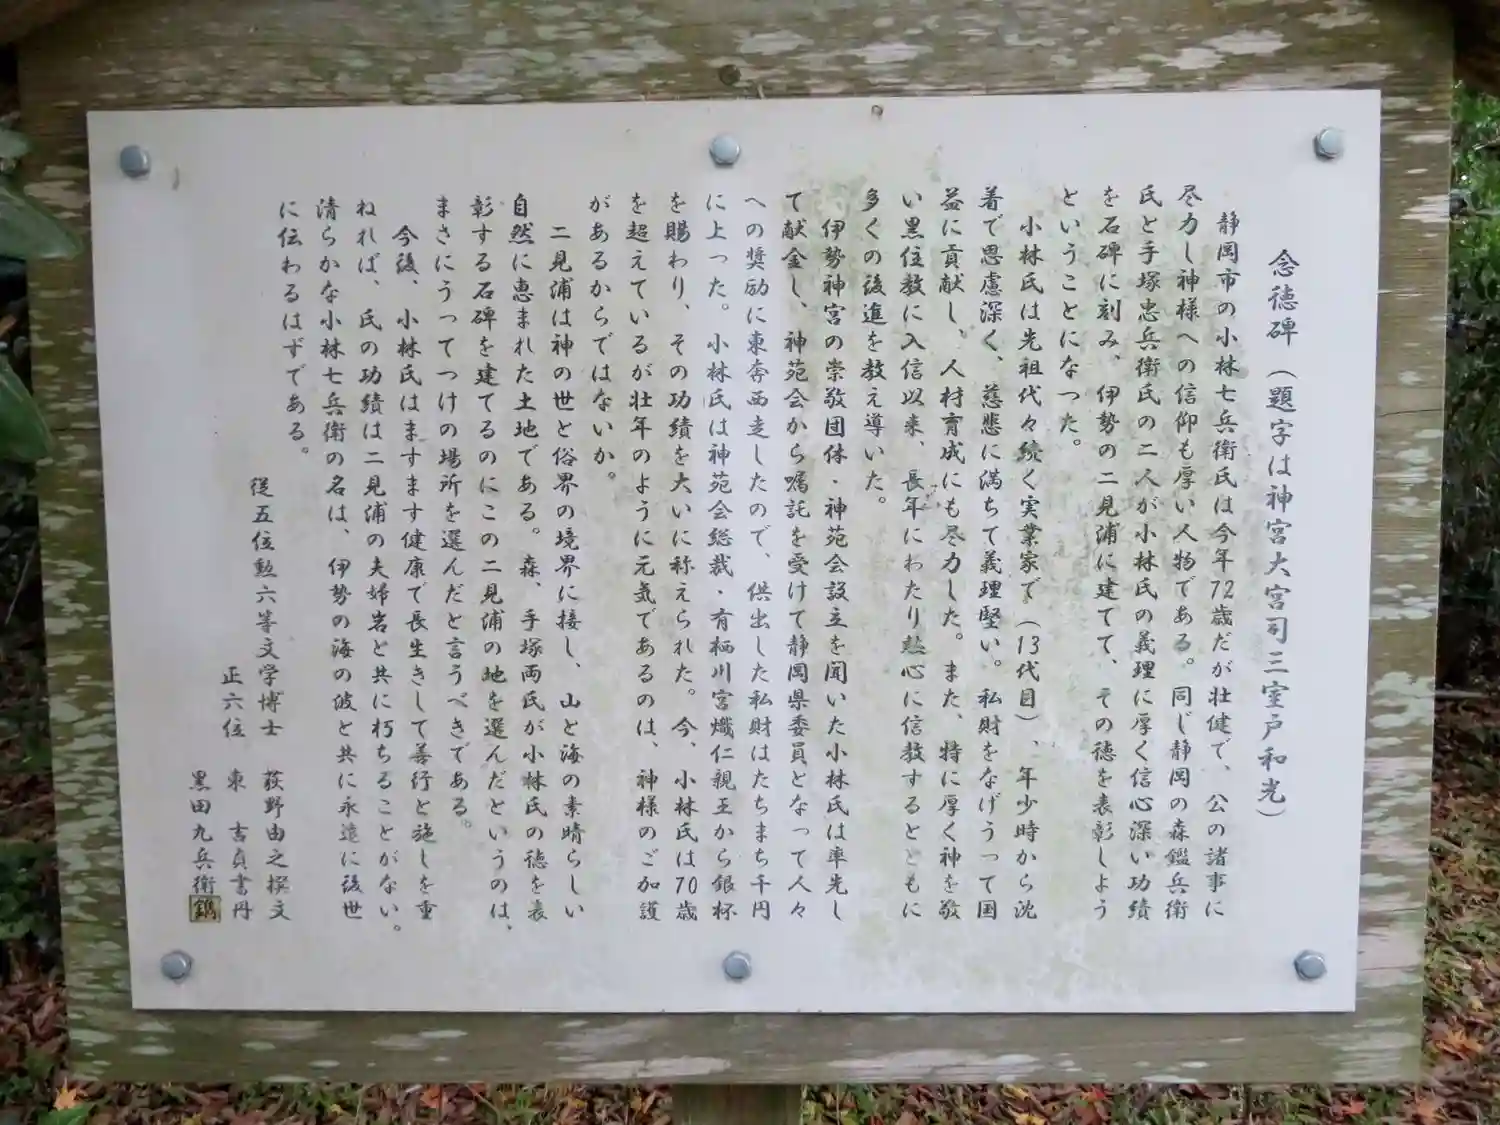 念徳碑（題字は神宮大宮司三室戸和光）
静岡市の小林七兵衛氏は今年72歳だが壮健で、公の諸事に
尽力し神様への信仰も厚い人物である。同じ静岡の森鑑兵衛
氏と手塚忠兵衛氏の二人が小林氏の義理に厚く信心深い功績
を石碑に刻み、伊勢の二見浦に建てて、その徳を表彰しよう
ということになった。
小林氏は先祖代々続く実業家で（13代目）、年少時から沈
着で思慮深く、慈悲に満ちて義理堅い。私財をなげうって国
益に貢献し、人材育成にも尽力した。また、特に厚く神を敬
い黒住教に入信以来、長年にわたり熱心に信教するとともに
多くの後進を教え導いた。
伊勢神宮の崇敬団体・神苑会設立を聞いた小林氏は率先し
て献金し、神苑会から嘱託を受けて静岡県委員となって人々
への奨励に東奔西走したので、供出した私財はたちまち千円
に上った。小林氏は神苑会総裁・有栖川宮熾仁親王から銀杯
を賜わり、その功績を大いに称えられた。今、小林氏は70歳
を超えているが壮年のように元気であるのは、神様のご加護
があるからではないか。
二見浦は神の世と俗界の境界に接し、山と海の素晴らしい
自然に恵まれた土地である。森、手塚両氏が小林氏の徳を表
彰する石碑を建てるのにこの二見浦の地を選んだというのは、
まさにうってつけの場所を選んだと言うべきである。
今後、小林氏はますます健康で長生きして善行と施しを重
ねれば、氏の功績は二見浦の夫婦岩と共に朽ちることがない。
清らかな小林七兵衛の名は、伊勢の海の波と共に永遠に後世
に伝わるはずである。
従五位勲六等文学博士 荻野由之撰文
正六位 東 吉貞書丹
黒田九兵衛鐫